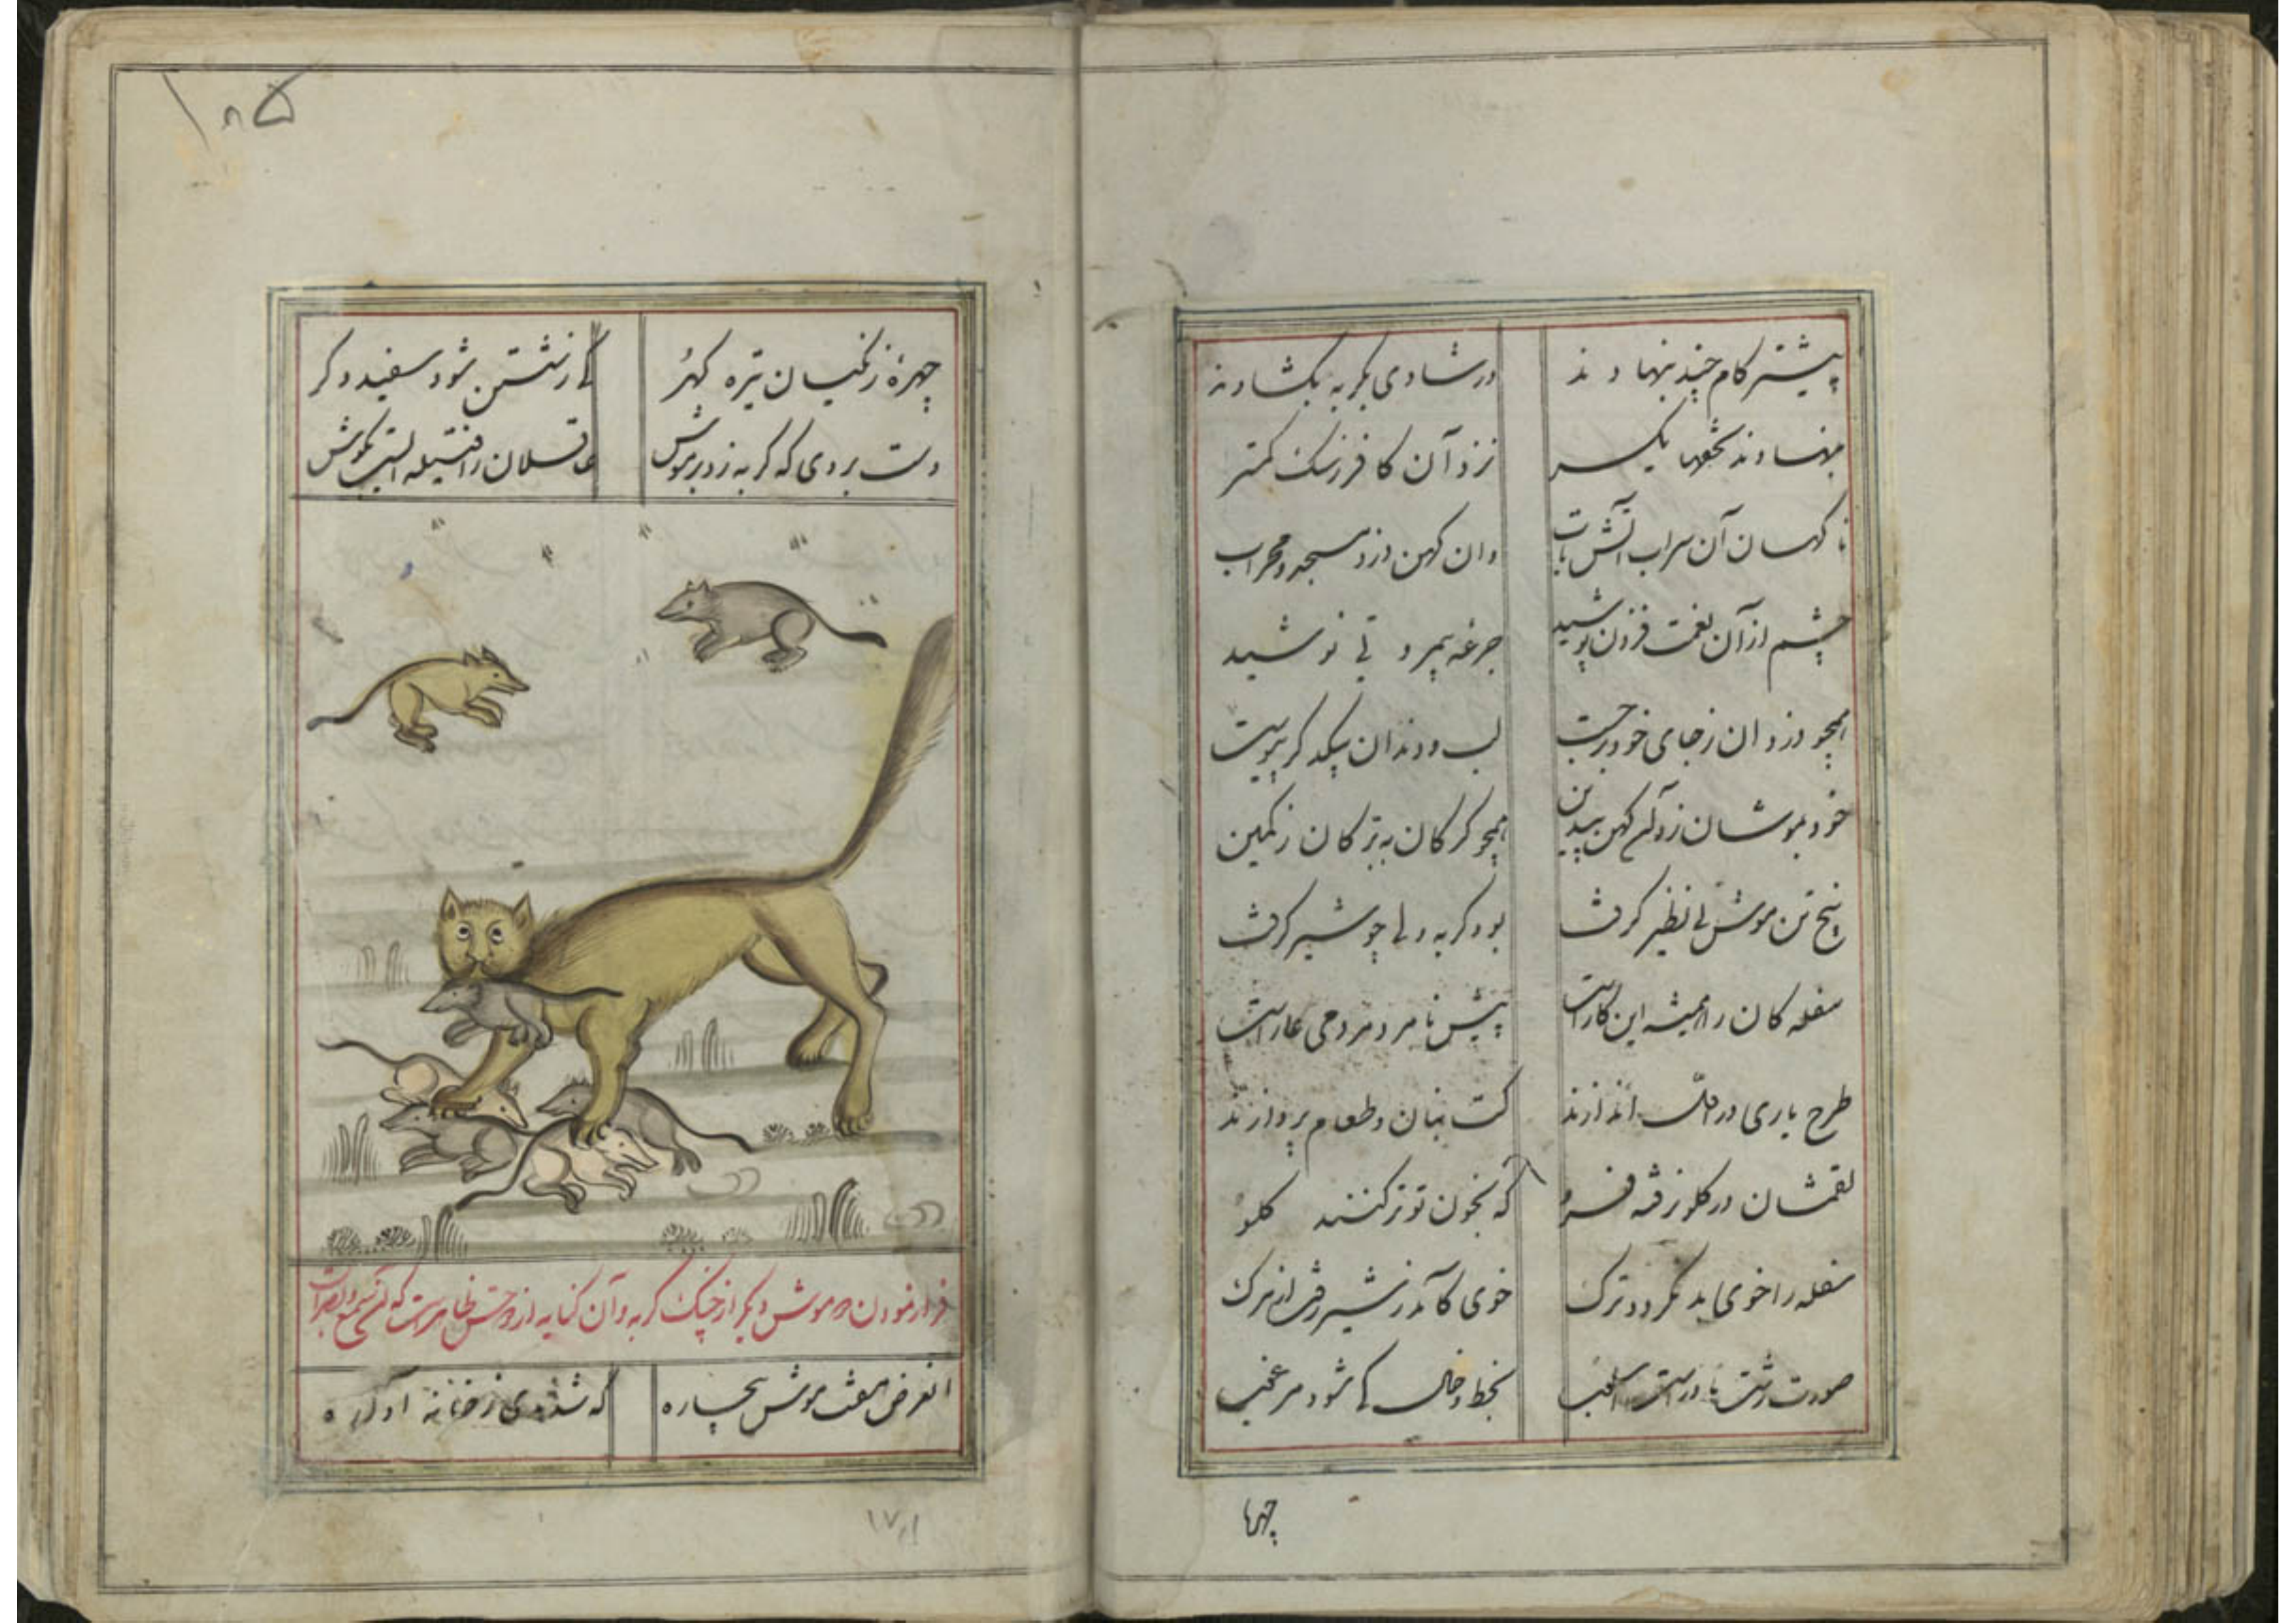 پیشتر کام چند بنهادند در شادی بگربه بگشادند
بنهادند تحفها یکسر نزد آن کافر ز سگ کمتر
ناگهان آن سراب آتش تاب وان کهن دزد مسجد و محراب
چشم از آن نعمت فزون پوشید جرعه بمرد نوشید
همچو دزدان ز جای خود برجست لب و دندان بیکدگر پیوست
خود بموشان زد کهن همچو گرگان به بزکان ز کمین
پنج تن موش بی نظیر گرفت بود گربه ولی چو شیر گرفت
سفله کان را همیشه این کار است پیش نامرد مردمی عار است
طرح یاری در اندازند کت بنان و طعام پردازند
لقمشان در گلو نرفته فرو که بخون تو تر کنند گلو
سفله را خوی بد نگردد ترک خوی کآمد ز شیر رفت از مرگ
صورت زشت نادرست بخط و خال کی شود مرغب
چهرهٔ
چهرهٔ زنگیان تیره گهر کی ز شستن شود سفید دگر
دست بردی که گربه زد بر موش غافلان را فتیله است بگوش
فرار نمودن دو موش دیگر از چنگ گربه و آن کنایه از دو حس ظاهر است که آن سمع و بصر است
الغرض هفت موش بیچاره که شدندی ز خانه آواره
۱۰۵
۱۷۱